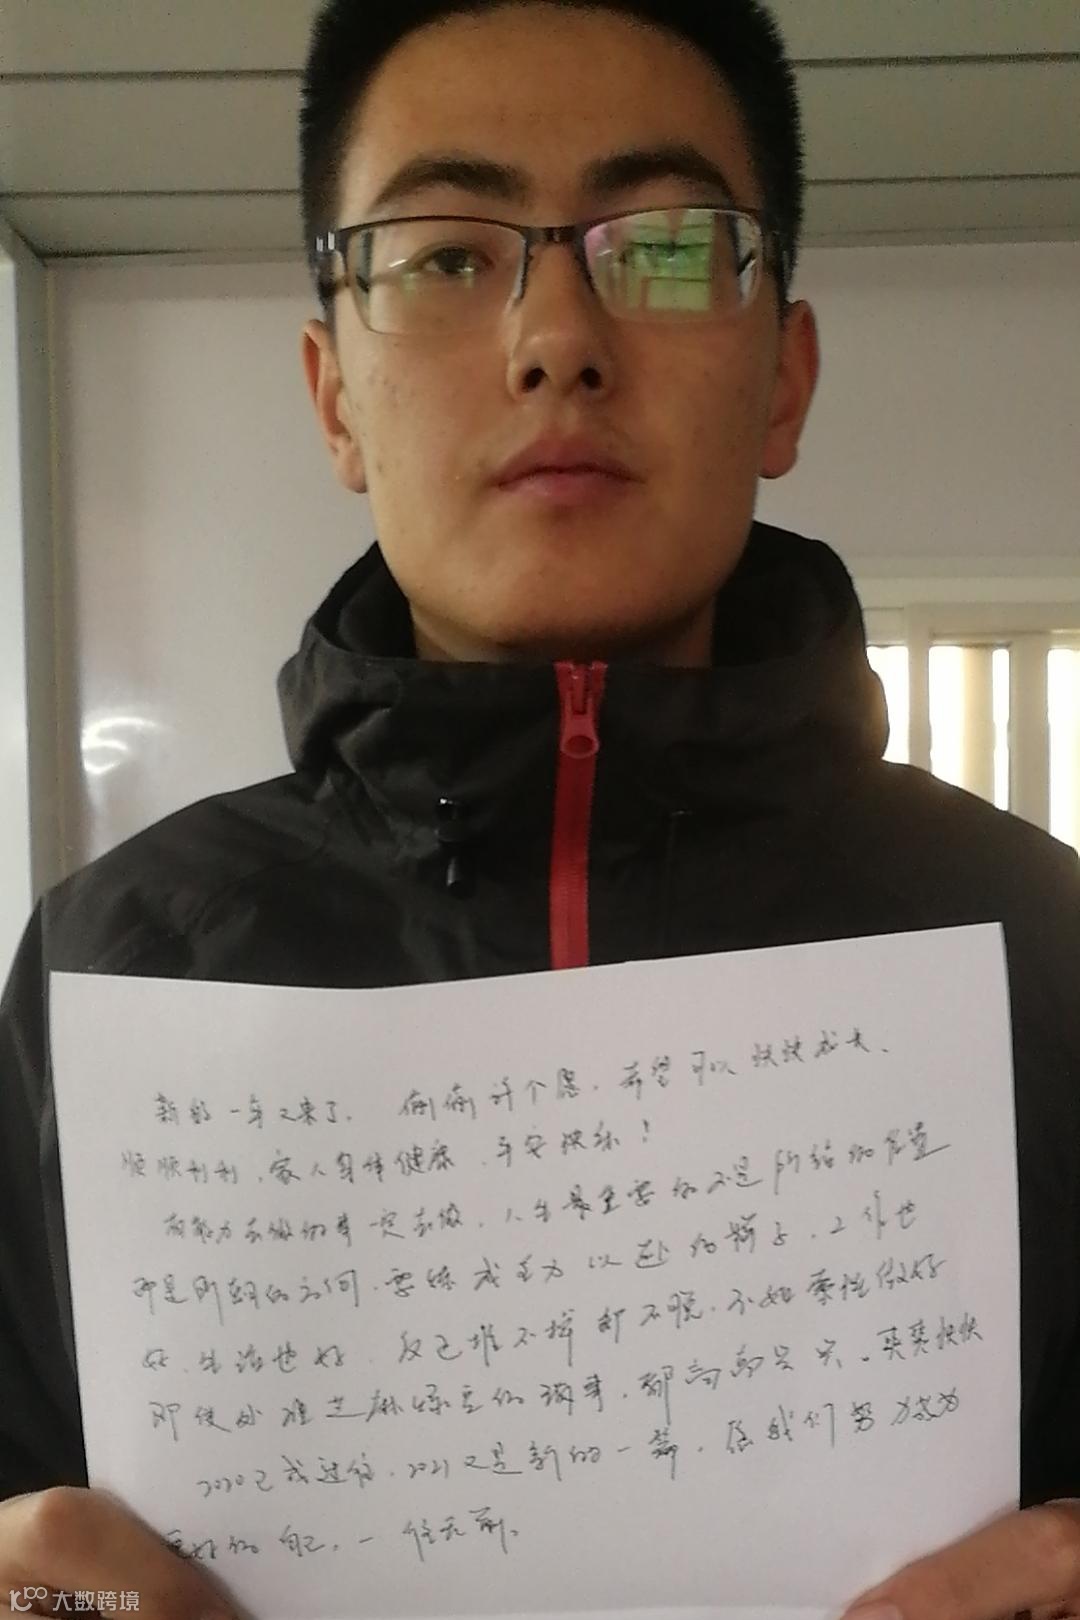 新的一年又来了,偷偷许个愿,希望可以快快成长、
顺顺利利,家人身体健康,平安快乐!
有能力去做的事一定去做,人生最重要的不是所站的位置
而是所朝的方向,要练成全力以赴的样子,工作也
好,生活也好,反正推不掉卸不脱,不如索性做好
即使处理芝麻绿豆的琐事,都高高兴兴,爽爽快快
2020已成过往,2021又是新的一篇,愿我们努力成为
更好的自己,一往无前。
大数跨境